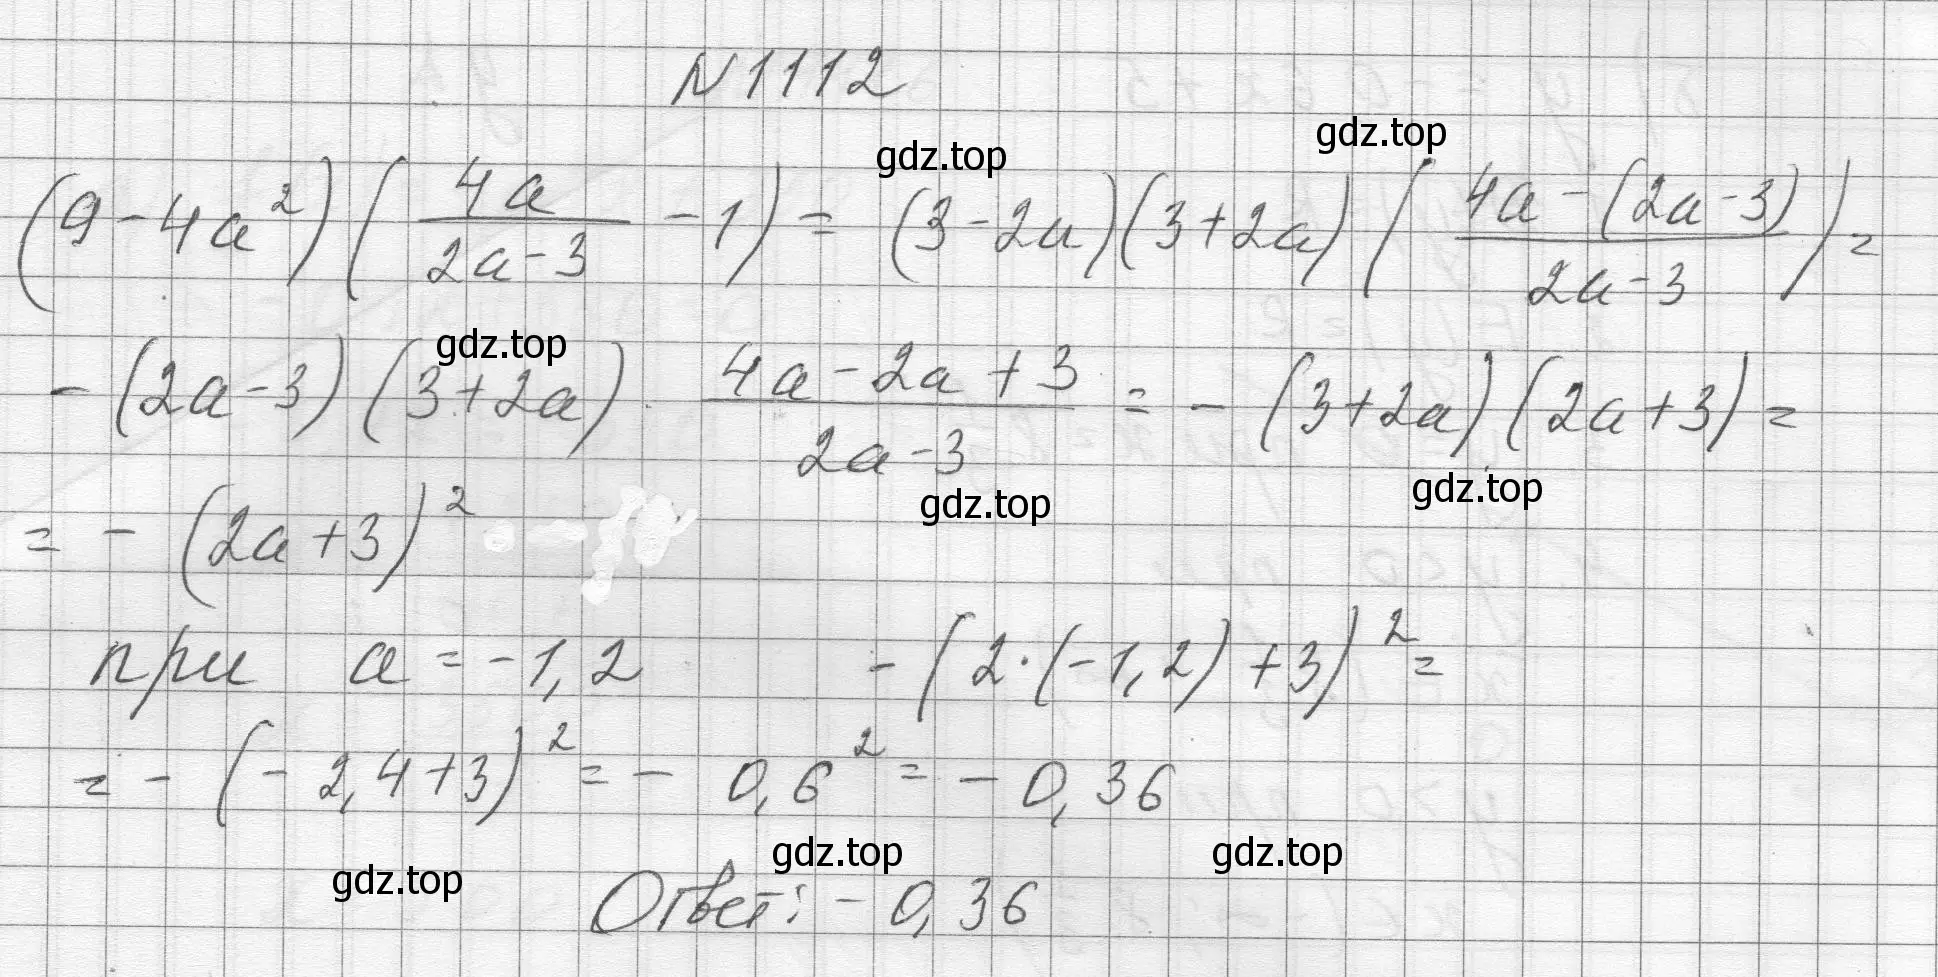 N 1112
gdz.top
gdz.top
(9 - 4a²) (4a/(2a - 3) - 1) = (3 - 2a)(3 + 2a) ((4a - (2a - 3))/(2a - 3)) =
gdz.top
- (2a - 3) (3 + 2a) · (4a - 2a + 3)/(2a - 3) = - (3 + 2a) (2a + 3) =
gdz.top
gdz.top
= - (2a + 3)²
при a = -1,2 - (2 · (-1,2) + 3)² =
= - (- 2,4 + 3)² = - 0,6² = - 0,36
gdz.top
gdz.top
gdz.top
Ответ: - 0,36